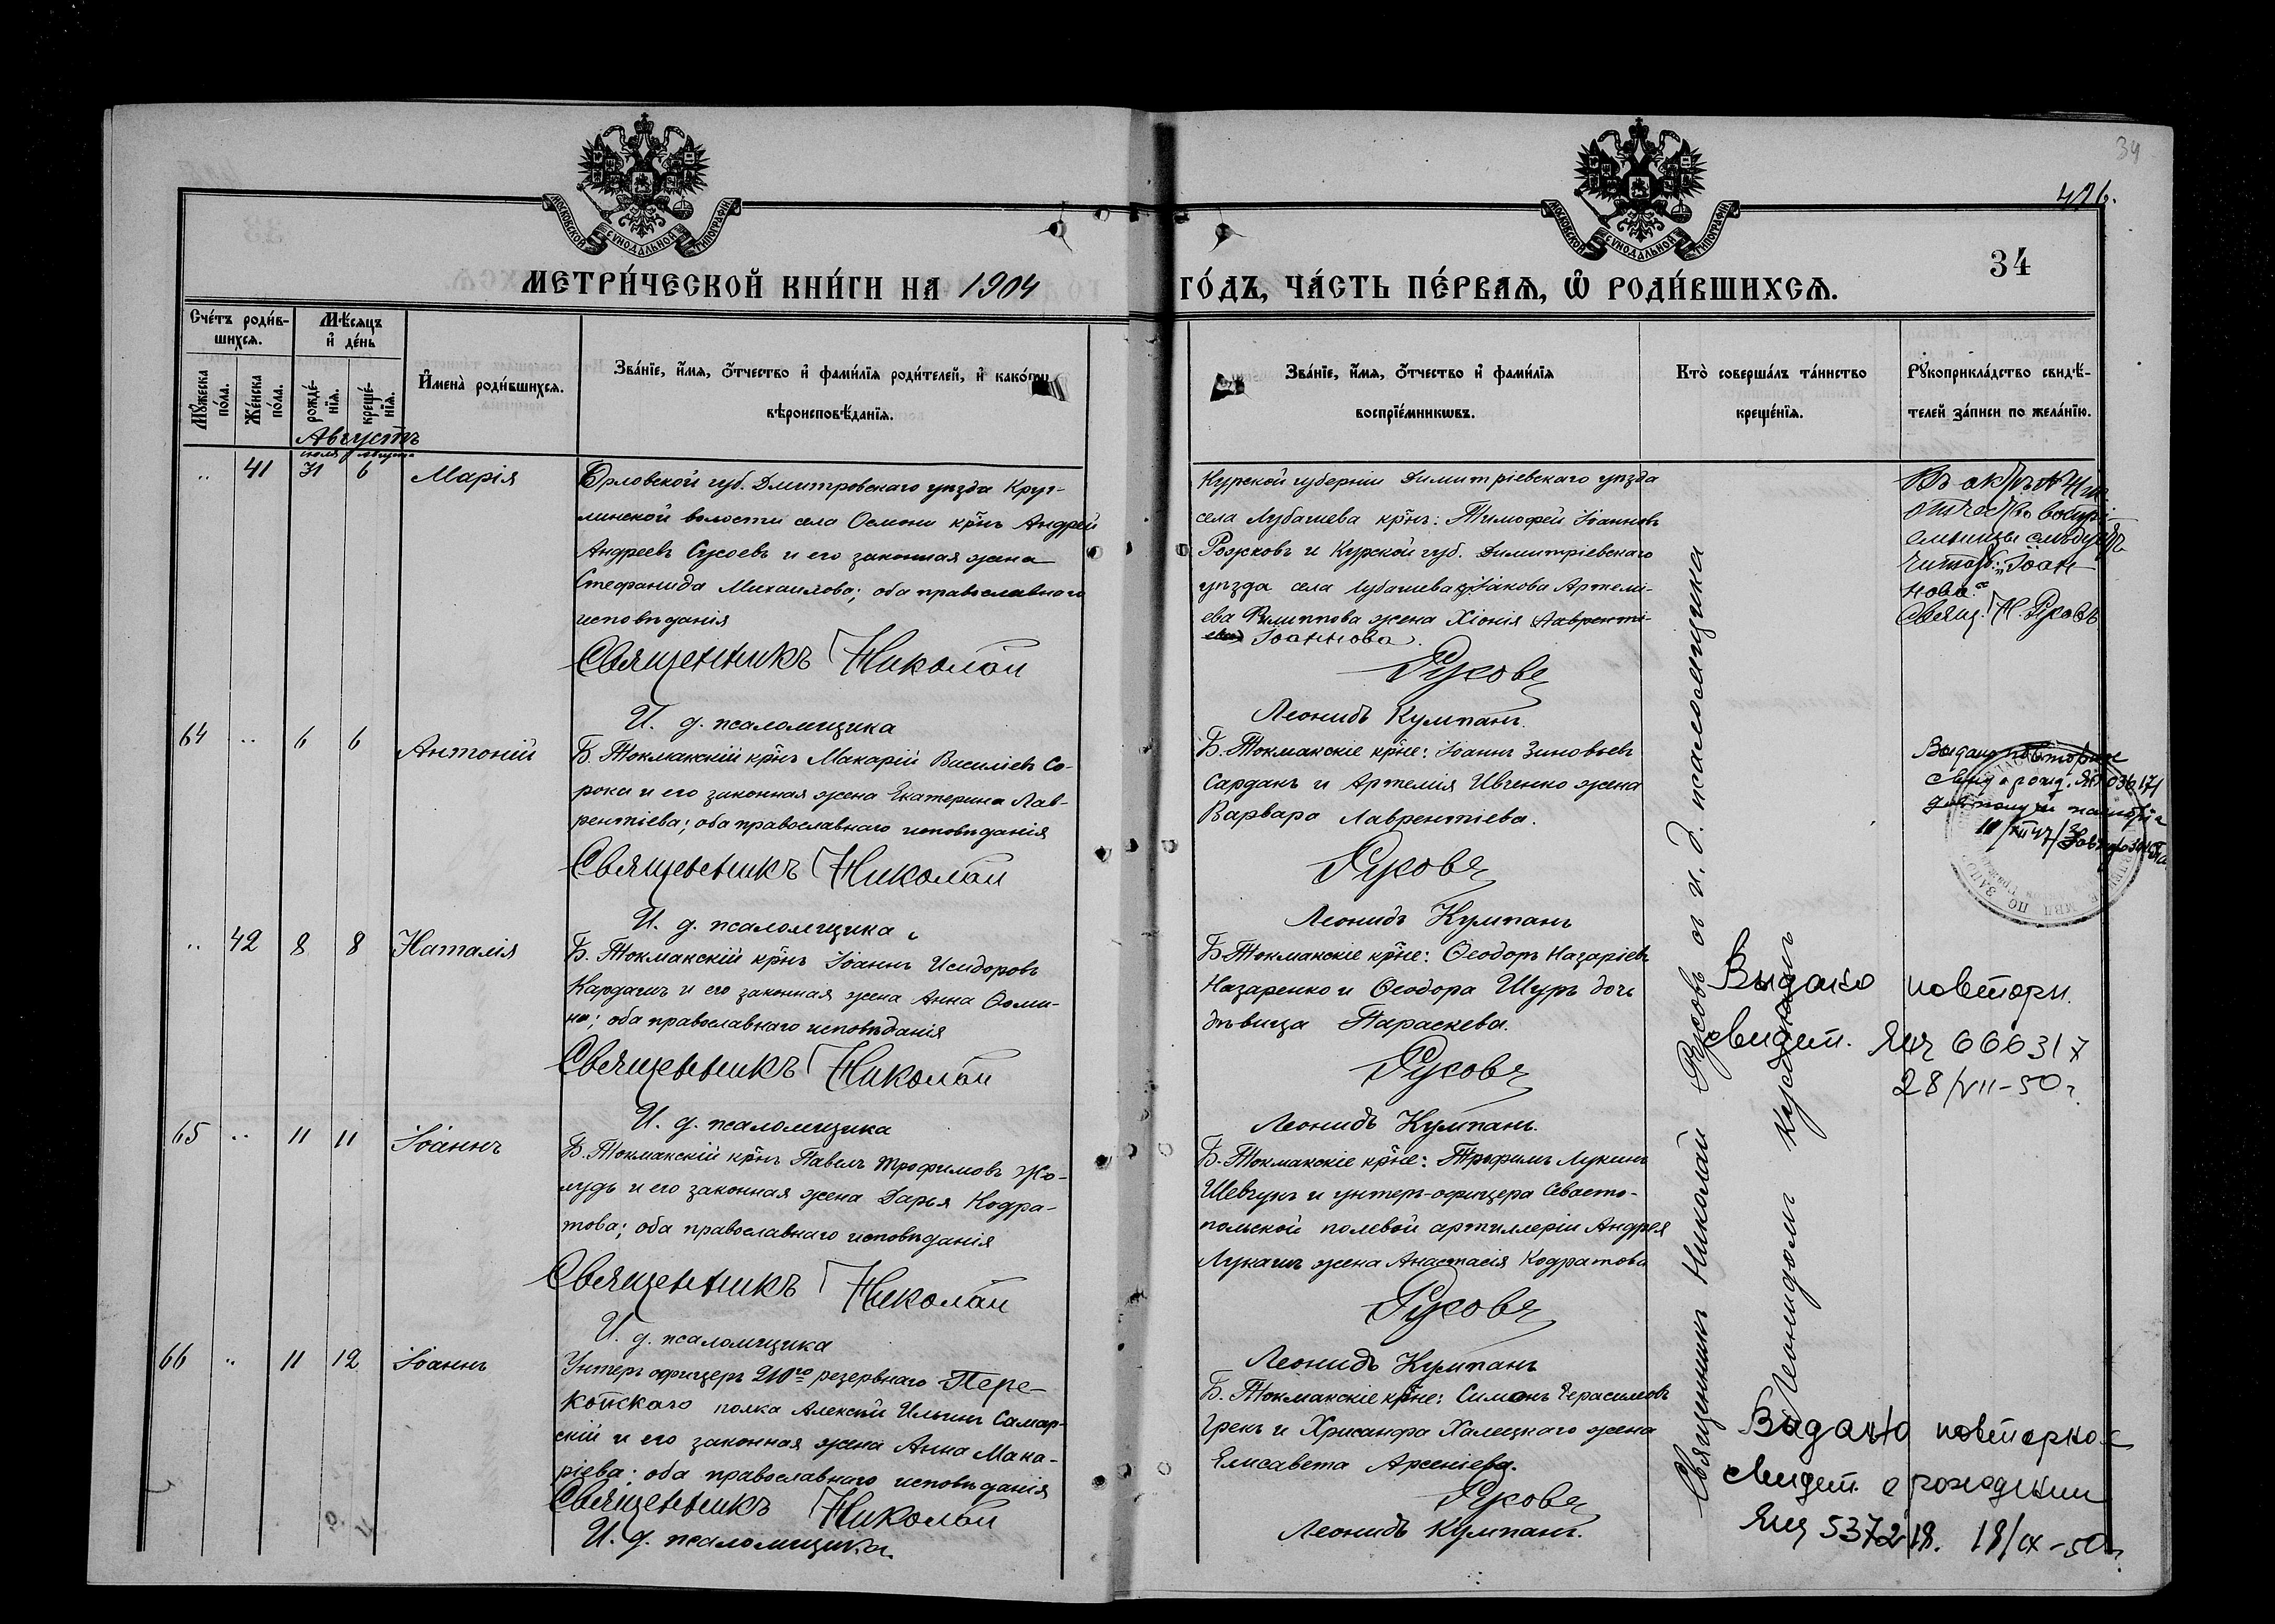 34
426.
МОСКОВСКОЙ СѴНОДАЛЬНОЙ ТИПОГРАФІИ
МОСКОВСКОЙ СѴНОДАЛЬНОЙ ТИПОГРАФІИ
МЕТРИ́ЧЕСКОЙ КНИ́ГИ НА 1904
ГО́ДЪ, ЧА́СТЬ ПЕ́РВАѦ, Ѽ РОДИ́ВШИХСѦ.
34
Сче́тъ роди́в-
шихсѧ.
Мꙋ́жеска
по́ла.
Же́нска
по́ла.
Мѣ́сѧцъ
и҆ де́нь
рожде́-
нїѧ.
креще́-
нїѧ.
И҆мена̀ роди́вшихсѧ.
Зва́нїе, и҆́мѧ, ѻ҆́тчество и҆ фами́лїѧ роди́телей, и҆ како́гѡ
вѣроисповѣ́данїѧ.
Зва́нїе, и҆́мѧ, ѻ҆́тчество и҆ фами́лїѧ
воспрїе́мникѡвъ.
Кто̀ соверша́лъ та́инство
креще́нїѧ.
Рꙋкоприкла́дство свидѣ́-
телей за́писи по жела́нїю.
Августъ
іюля августа
.. 41 31 6 Марія
Орловской губ. Дмитровскаго уѣзда Круг-
линской волости села Осмони крн̃ъ Андрей
Андреевъ Сусоевъ и его законная жена
Стефанида Михаилова; оба православнаго
исповѣданія
Священникъ Николай
И. д. псаломщика
Курской губерніи Димитріевскаго уѣзда
села Лубашева крн̃ъ: Тимофей Іоанновъ
Рожковъ и Курской губ. Димитріевскаго
уѣзда села Лубашева Іакова Артемі-
ева Филиппова жена Хіонія Лавренті-
ева Іоаннова.
Русовъ
Леонидъ Кумпанъ.
Въ актѣ № 41 ж.
отчество воспрі-
емницы слѣдуетъ
читать: „Іоан-
нова“
Свящ. Н. Русовъ
64 .. 6 6 Антоній
Б. Токмакскій крн̃ъ Макарій Василіевъ Со-
рока и его законная жена Екатерина Лав-
рентіева; оба православнаго исповѣданія
Священникъ Николай
И. д. псаломщика
Б. Токмакскіе крн̃е: Іоаннъ Зиновьевъ
Сарданъ и Артемія Ивченко жена
Варвара Лаврентіева.
Русовъ
Леонидъ Кумпанъ
Выдано повторное
свид. о рожд.
.. 42 8 8 Наталія
Б. Токмакскій крн̃ъ Іоаннъ Исидоровъ
Кардашъ и его законная жена Анна Ѳоми-
на; оба православнаго исповѣданія
Священникъ Николай
И. д. псаломщика
Б. Токмакскіе крн̃е: Ѳеодоръ Назаріевъ
Назаренко и Ѳеодора Шуръ дочь
дѣвица Параскева.
Русовъ
Леонидъ Кумпанъ.
Выдано повторн.
свидет. ЯЦ 666317
28/VII-50 г.
65 .. 11 11 Іоаннъ
Б. Токмакскій крн̃ъ Павелъ Трофимовъ Жо-
лудь и его законная жена Дарья Кодра-
това; оба православнаго исповѣданія
Священникъ Николай
И. д. псаломщика
Б. Токмакскіе крн̃е: Трофимъ Лукинъ
Шевчукъ и унтеръ-офицера Севасто-
польской полевой артиллеріи Андрея
Лукашъ жена Анастасія Кодратова
Русовъ
Леонидъ Кумпанъ
66 .. 11 12 Іоаннъ
Унтеръ офицеръ 210го резервнаго Пере-
копскаго полка Алексій Ильинъ Самар-
скій и его законная жена Анна Мака-
ріева; оба православнаго исповѣданія
Священникъ Николай
И. д. псаломщика
Б. Токмакскіе крн̃е: Симонъ Герасимовъ
Грекъ и Хрисанфа Халецкаго жена
Елисавета Арсеніева.
Русовъ
Леонидъ Кумпанъ.
Выдано повторное
свидет. о рождении
ЯЦ 537218. 18/IX-50 г.
Священникъ Николай Русовъ съ и. д. псаломщика
Леонидомъ Кумпаномъ